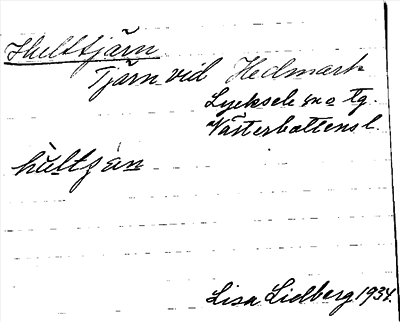 Hulttjärn
Tjärn vid Hedmark
Lycksele sn o tg.
Västerbottens l.
hùltʒæ̀n
Lisa Lidberg 1934.